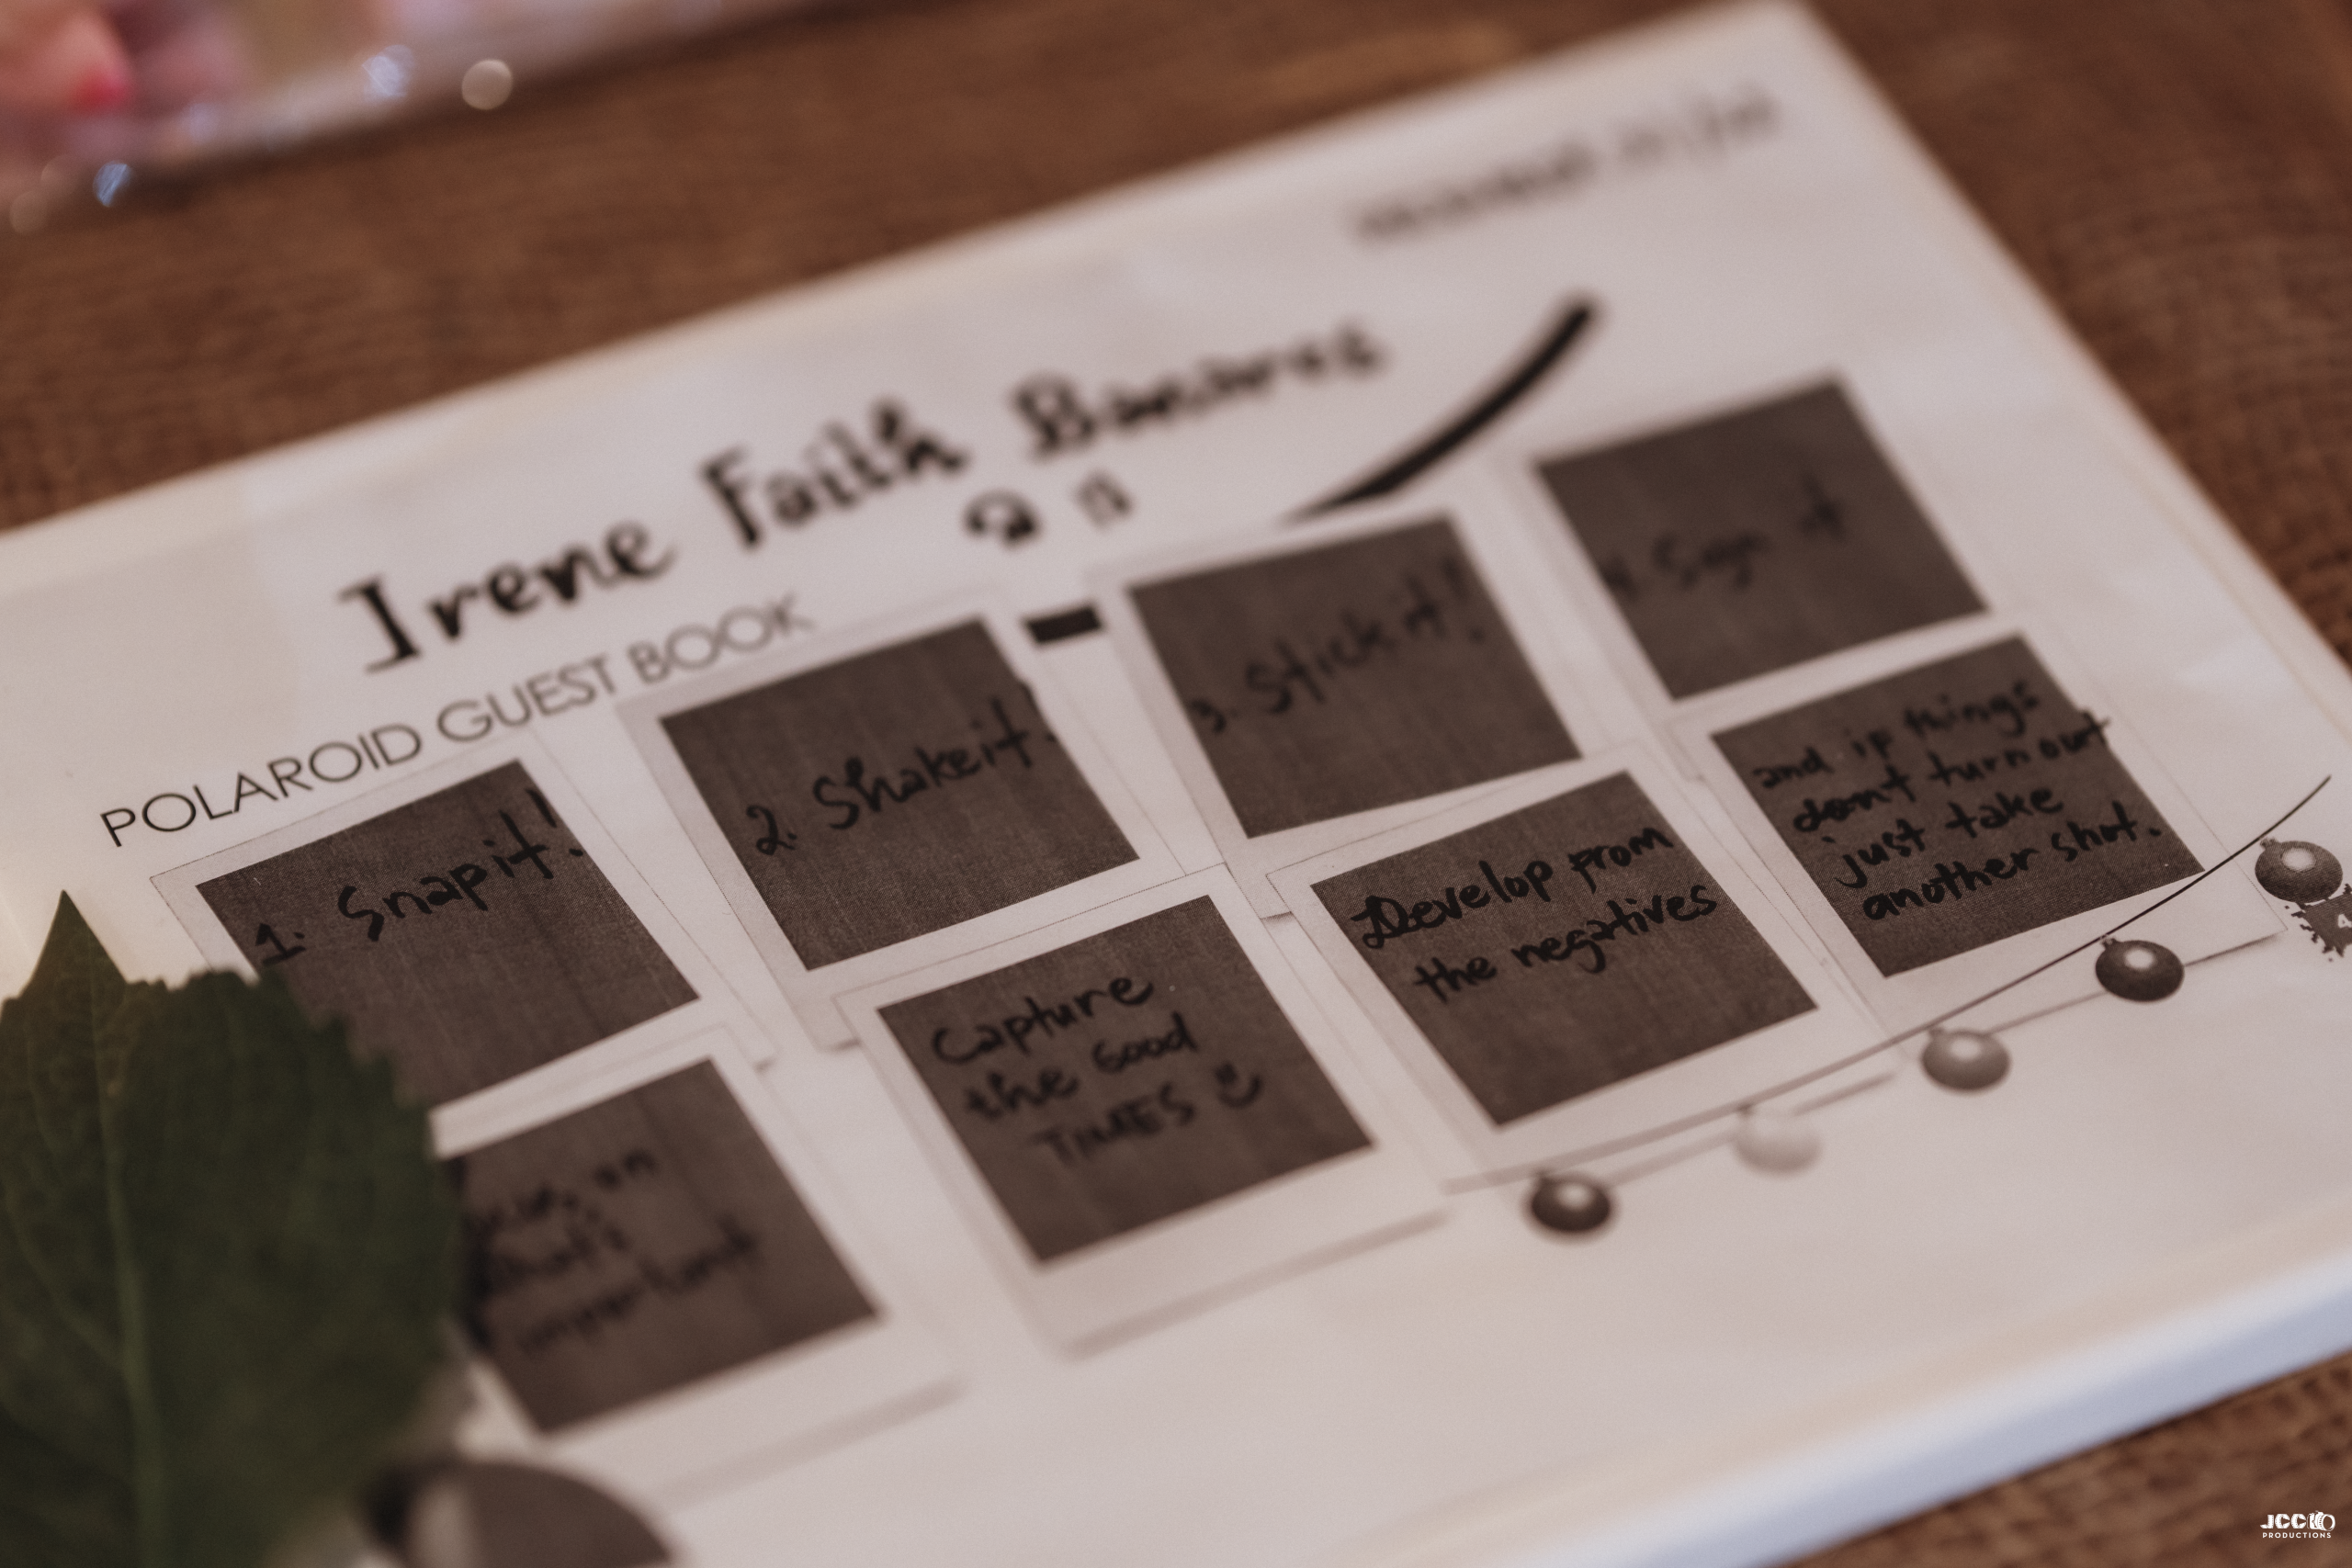 Irene Faith
POLAROID GUEST BOOK
1. Snap it!
2. Shake it.
3. Stick it!
4. Sign it
on
what's
important
Capture
the Good
TIMES
Develop from
the negatives
and if things
dont turn out
just take
another shot.
JCC
PRODUCTIONS